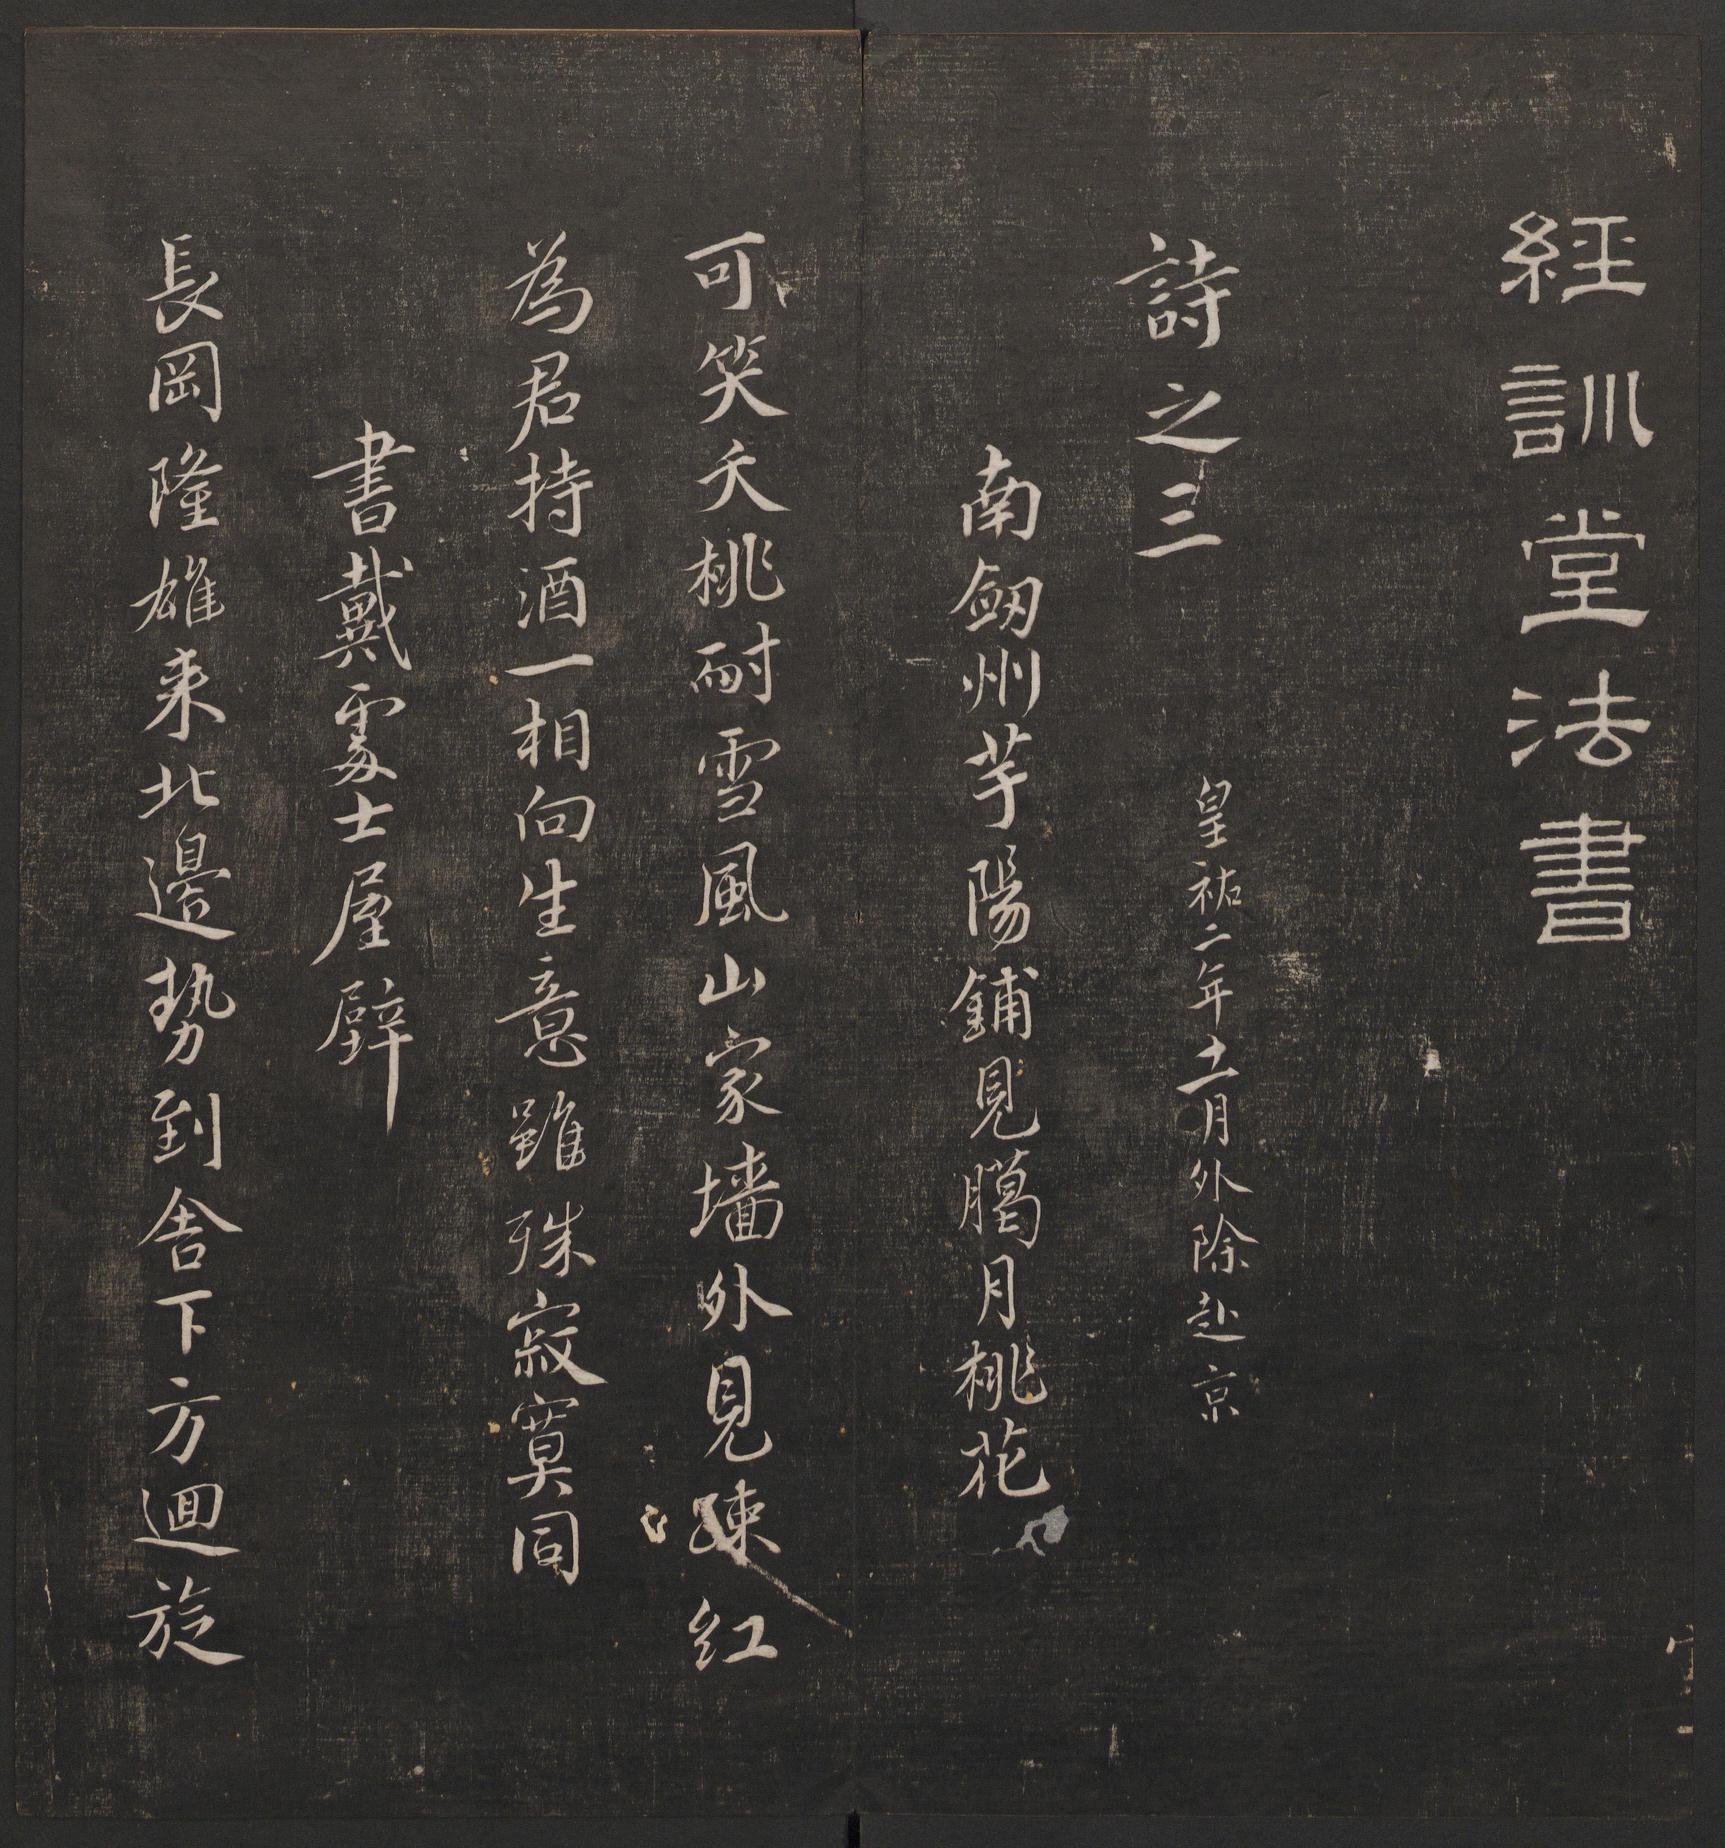 經訓堂法書
詩之三
皇祐二年十一月外除赴京
南劔州芋陽鋪見臈月桃花
可笑夭桃耐雪風山家墻外見疎紅
為君持酒一相向生意雖殊寂寞同
書戴處士屋壁
長岡隆雄来北邊勢到舍下方迴旋